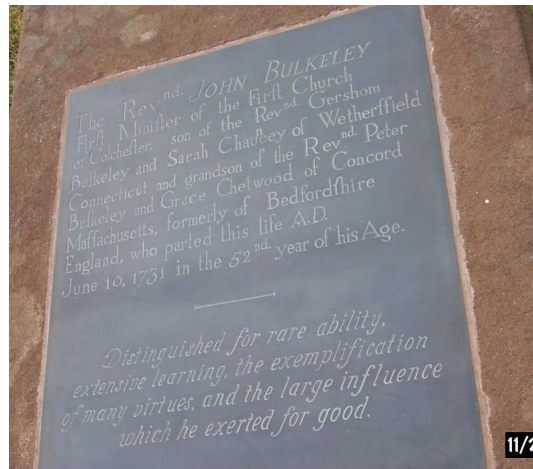 The Revnd. JOHN BULKELEY
Firſt Miniſter of the Firſt Church
of Colcheſter, son of the Revnd. Gershom
Bulkeley and Sarah Chauncy of Wethersſield
Connecticut and grandson of the Revnd. Peter
Bulkeley and Grace Chetwood of Concord
Maſſachusetts, formerly of Bedfordſhire
England, who parted this life A.D.
June 10, 1731 in the 52nd. year of his Age.
Distinguished for rare ability,
extensive learning, the exemplification
of many virtues, and the large influence
which he exerted for good.
11/2